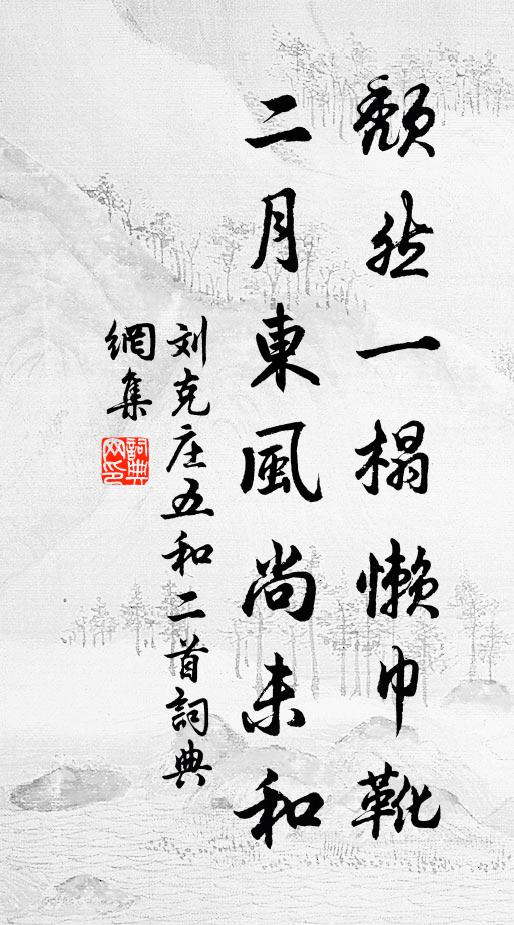 颓然一榻懒巾靴
二月東風尚未和
刘克庄五和二首詞典
網集
詞典
网印